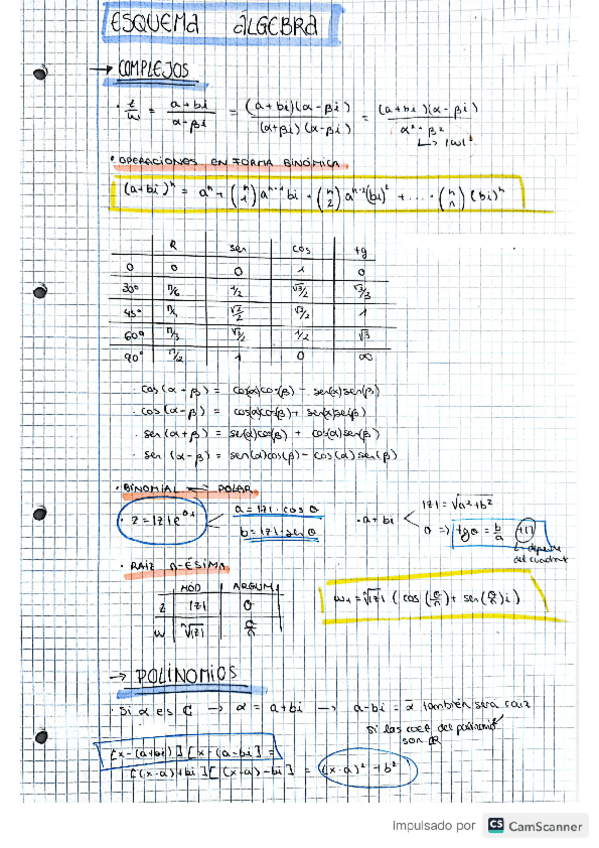 ESQUEMA ÁLGEBRA
→ COMPLEJOS
· z/w = (a+bi)/(α-βi) = (a+bi)(α-βi)/(α+βi)(α-βi) = (a+bi)(α-βi)/(α²-β²)
↳ |w|²
· OPERACIONES EN FORMA BINÓMICA
(a+bi)ⁿ = aⁿ + (n 1) aⁿ⁻¹ bi + (n 2) aⁿ⁻² (bi)² + ... · (n n) (bi)ⁿ
R sen cos tg
0 0 0 1 0
30º π/6 1/2 √3/2 √3/3
45º π/4 √2/2 √2/2 1
60º π/3 √3/2 1/2 √3
90º π/2 1 0 ∞
· cos(α+β) = cos(α)cos(β) - sen(α)sen(β)
· cos(α-β) = cos(α)cos(β) + sen(α)sen(β)
· sen(α+β) = sen(α)cos(β) + cos(α)sen(β)
· sen(α-β) = sen(α)cos(β) - cos(α)sen(β)
· BINOMIAL ⟷ POLAR
a = |z|·cos θ
· z = |z|e
b = |z|·sen θ
· a+bi
|z| = √a²+b²
θ ⇒ tgθ = b/a
↳ depende
del cuadrant
· RAÍZ n-ÉSIMA
MÓD ARGUM
z |z| θ
w ⁿ√|z| θ/n
w₁ = ⁿ√|z| (cos(θ/n) + sen(θ/n)i)
→ POLINOMIOS
· Si α es ℂ → α = a+bi → a-bi = ᾱ también será raíz
si los coef del polinomio
son ℝ
[x-(a+bi)][x-(a-bi)] =
[(x-a)+bi][(x-a)-bi] = (x-a)² + b²
Impulsado por CS CamScanner